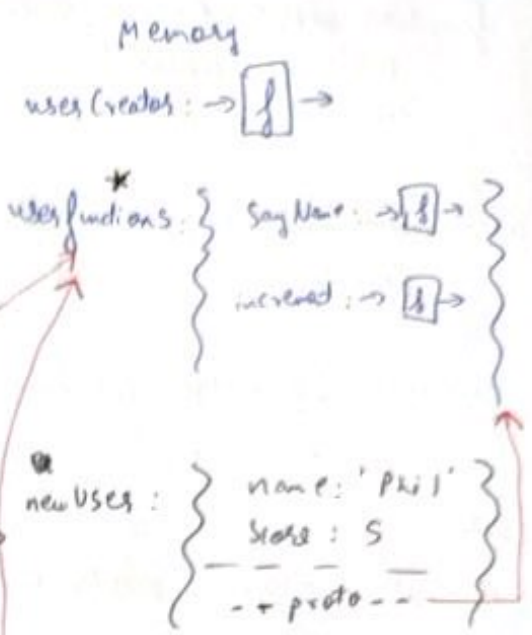 Memory
userCreator : → [f] →
userfunctions : { sayName : → [f] → }
increment : → [f] →
newUser : { name : 'Phil' }
score : 5
-- proto --